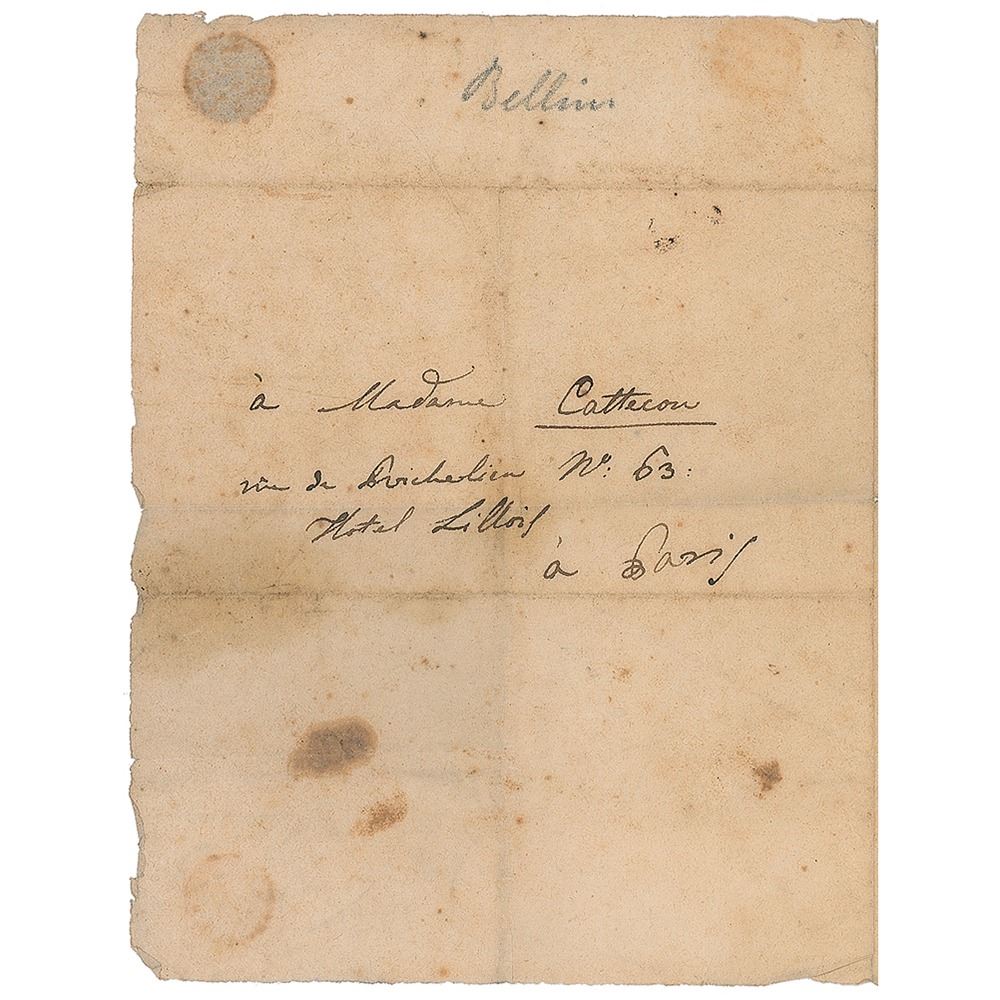 Bellini
à Madame Cattecou
rue de Richelieu Nº: 63:
Hotel Lillois
à Paris